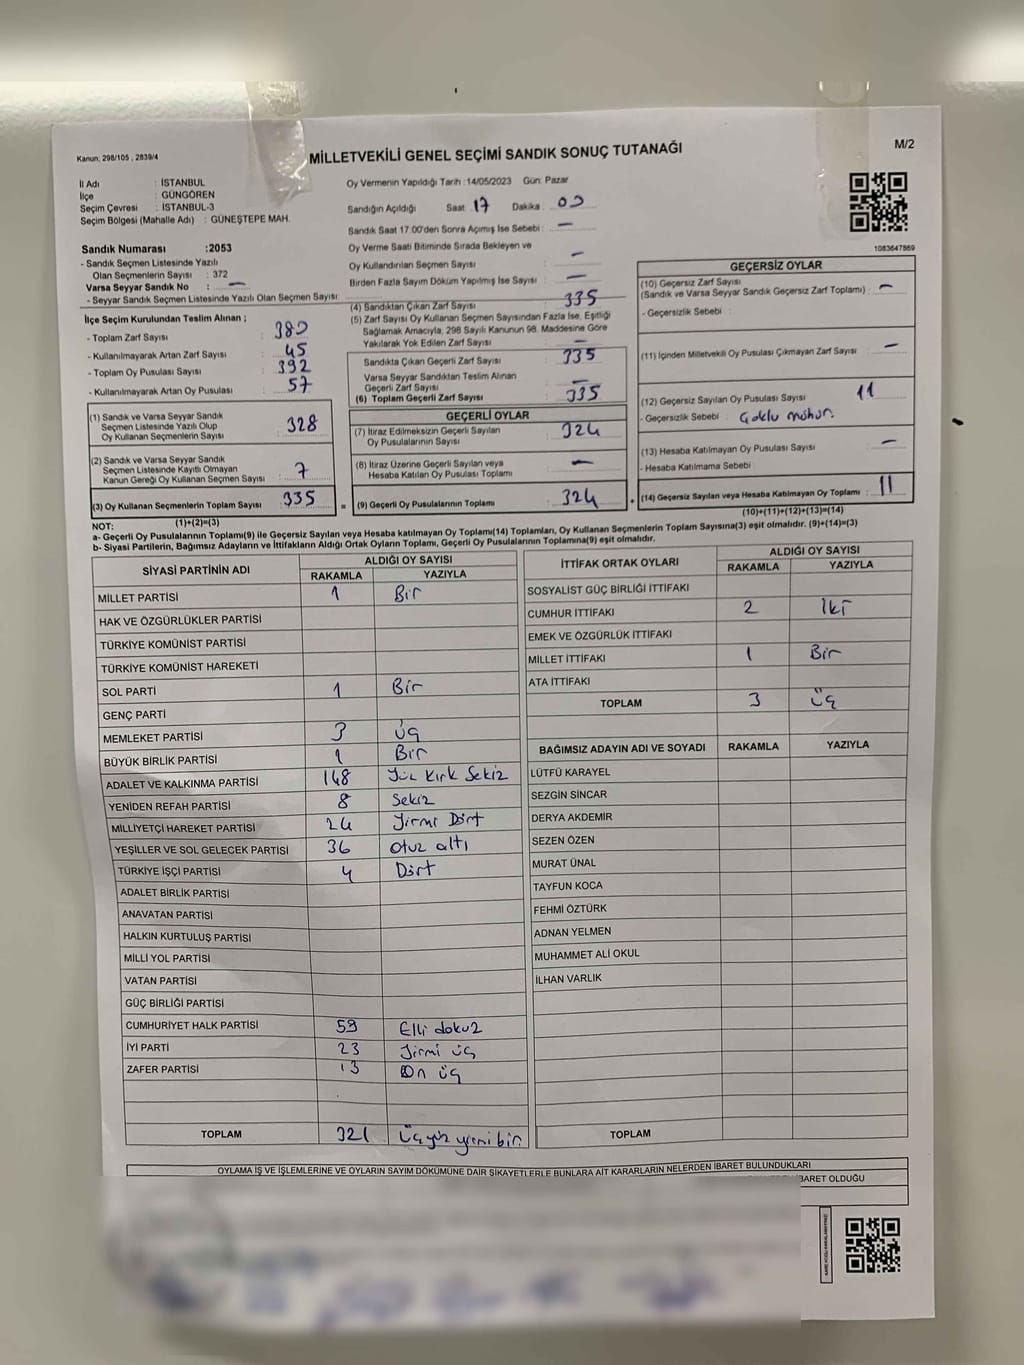 Kanun; 298/105 , 2839/4
MİLLETVEKİLİ GENEL SEÇİMİ SANDIK SONUÇ TUTANAĞI
M/2
İl Adı : İSTANBUL
İlçe : GÜNGÖREN
Seçim Çevresi : İSTANBUL-3
Seçim Bölgesi (Mahalle Adı) : GÜNEŞTEPE MAH.
Sandık Numarası :2053
- Sandık Seçmen Listesinde Yazılı
Olan Seçmenlerin Sayısı : 372
Varsa Seyyar Sandık No : —
- Seyyar Sandık Seçmen Listesinde Yazılı Olan Seçmen Sayısı :
Oy Vermenin Yapıldığı Tarih :14/05/2023 Gün: Pazar
Sandığın Açıldığı Saat : 17 Dakika : 00
Sandık Saat 17.00'den Sonra Açımış İse Sebebi : —
Oy Verme Saati Bitiminde Sırada Bekleyen ve
Oy Kullandırılan Seçmen Sayısı : —
Birden Fazla Sayım Döküm Yapılmış İse Sayısı : —
1083647869
İlçe Seçim Kurulundan Teslim Alınan ;
- Toplam Zarf Sayısı : 380
- Kullanılmayarak Artan Zarf Sayısı : 45
- Toplam Oy Pusulası Sayısı : 392
- Kullanılmayarak Artan Oy Pusulası : 57
(1) Sandık ve Varsa Seyyar Sandık
Seçmen Listesinde Yazılı Olup
Oy Kullanan Seçmenlerin Sayısı : 328
(2) Sandık ve Varsa Seyyar Sandık
Seçmen Listesinde Kayıtlı Olmayan
Kanun Gereği Oy Kullanan Seçmen Sayısı : 7
(3) Oy Kullanan Seçmenlerin Toplam Sayısı : 335
(1)+(2)=(3)
(4) Sandıktan Çıkan Zarf Sayısı : 335
(5) Zarf Sayısı Oy Kullanan Seçmen Sayısından Fazla İse, Eşitliği
Sağlamak Amacıyla, 298 Sayılı Kanunun 98. Maddesine Göre
Yakılarak Yok Edilen Zarf Sayısı : —
Sandıkta Çıkan Geçerli Zarf Sayısı : 335
Varsa Seyyar Sandıktan Teslim Alınan
Geçerli Zarf Sayısı : —
(6) Toplam Geçerli Zarf Sayısı : 335
GEÇERLİ OYLAR
(7) İtiraz Edilmeksizin Geçerli Sayılan
Oy Pusulalarının Sayısı : 324
(8) İtiraz Üzerine Geçerli Sayılan veya
Hesaba Katılan Oy Pusulası Toplamı : —
= (9) Geçerli Oy Pusulalarının Toplamı : 324
GEÇERSİZ OYLAR
(10) Geçersiz Zarf Sayısı
(Sandık ve Varsa Seyyar Sandık Geçersiz Zarf Toplamı) : —
- Geçersizlik Sebebi :
(11) İçinden Milletvekili Oy Pusulası Çıkmayan Zarf Sayısı : —
(12) Geçersiz Sayılan Oy Pusulası Sayısı : 11
- Geçersizlik Sebebi : Çoklu mühür.
(13) Hesaba Katılmayan Oy Pusulası Sayısı : —
- Hesaba Katılmama Sebebi :
+ (14) Geçersiz Sayılan veya Hesaba Katılmayan Oy Toplamı : 11
(10)+(11)+(12)+(13)=(14)
NOT:
a- Geçerli Oy Pusulalarının Toplamı(9) ile Geçersiz Sayılan veya Hesaba katılmayan Oy Toplamı(14) Toplamları, Oy Kullanan Seçmenlerin Toplam Sayısına(3) eşit olmalıdır. (9)+(14)=(3)
b- Siyasi Partilerin, Bağımsız Adayların ve İttifakların Aldığı Ortak Oyların Toplamı, Geçerli Oy Pusulalarının Toplamına(9) eşit olmalıdır.
SİYASİ PARTİNİN ADI ALDIĞI OY SAYISI
RAKAMLA YAZIYLA
MİLLET PARTİSİ 1 Bir
HAK VE ÖZGÜRLÜKLER PARTİSİ
TÜRKİYE KOMÜNİST PARTİSİ
TÜRKİYE KOMÜNİST HAREKETİ
SOL PARTİ 1 Bir
GENÇ PARTİ
MEMLEKET PARTİSİ 3 üç
BÜYÜK BİRLİK PARTİSİ 1 Bir
ADALET VE KALKINMA PARTİSİ 148 Yüz Kırk Sekiz
YENİDEN REFAH PARTİSİ 8 Sekiz
MİLLİYETÇİ HAREKET PARTİSİ 24 Yirmi Dört
YEŞİLLER VE SOL GELECEK PARTİSİ 36 otuz altı
TÜRKİYE İŞÇİ PARTİSİ 4 Dört
ADALET BİRLİK PARTİSİ
ANAVATAN PARTİSİ
HALKIN KURTULUŞ PARTİSİ
MİLLİ YOL PARTİSİ
VATAN PARTİSİ
GÜÇ BİRLİĞİ PARTİSİ
CUMHURİYET HALK PARTİSİ 59 Elli dokuz
İYİ PARTİ 23 Yirmi üç
ZAFER PARTİSİ 13 On üç
TOPLAM 321 üçyüz yirmi bir
İTTİFAK ORTAK OYLARI ALDIĞI OY SAYISI
RAKAMLA YAZIYLA
SOSYALİST GÜÇ BİRLİĞİ İTTİFAKI
CUMHUR İTTİFAKI 2 İki
EMEK VE ÖZGÜRLÜK İTTİFAKI
MİLLET İTTİFAKI 1 Bir
ATA İTTİFAKI
TOPLAM 3 üç
BAĞIMSIZ ADAYIN ADI VE SOYADI RAKAMLA YAZIYLA
LÜTFÜ KARAYEL
SEZGİN SİNCAR
DERYA AKDEMİR
SEZEN ÖZEN
MURAT ÜNAL
TAYFUN KOCA
FEHMİ ÖZTÜRK
ADNAN YELMEN
MUHAMMET ALİ OKUL
İLHAN VARLIK
TOPLAM
OYLAMA İŞ VE İŞLEMLERİNE VE OYLARIN SAYIM DÖKÜMÜNE DAİR ŞİKAYETLERLE BUNLARA AİT KARARLARIN NELERDEN İBARET BULUNDUKLARI
İBARET OLDUĞU